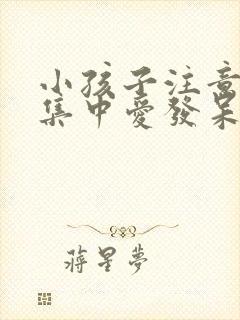 小孩子注意
集中愛發呆
蔣星夢